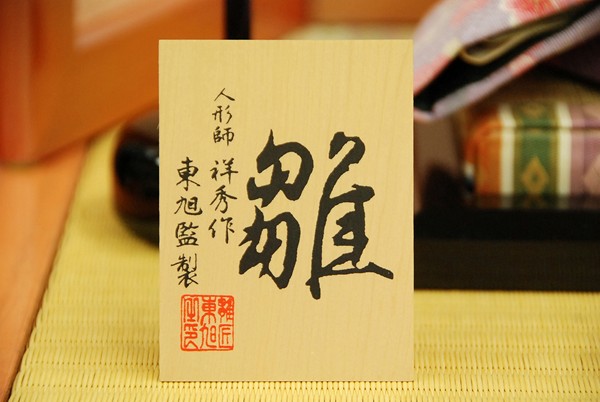 雛
人形師 祥秀作
東旭監製
雛匠
東旭
之印